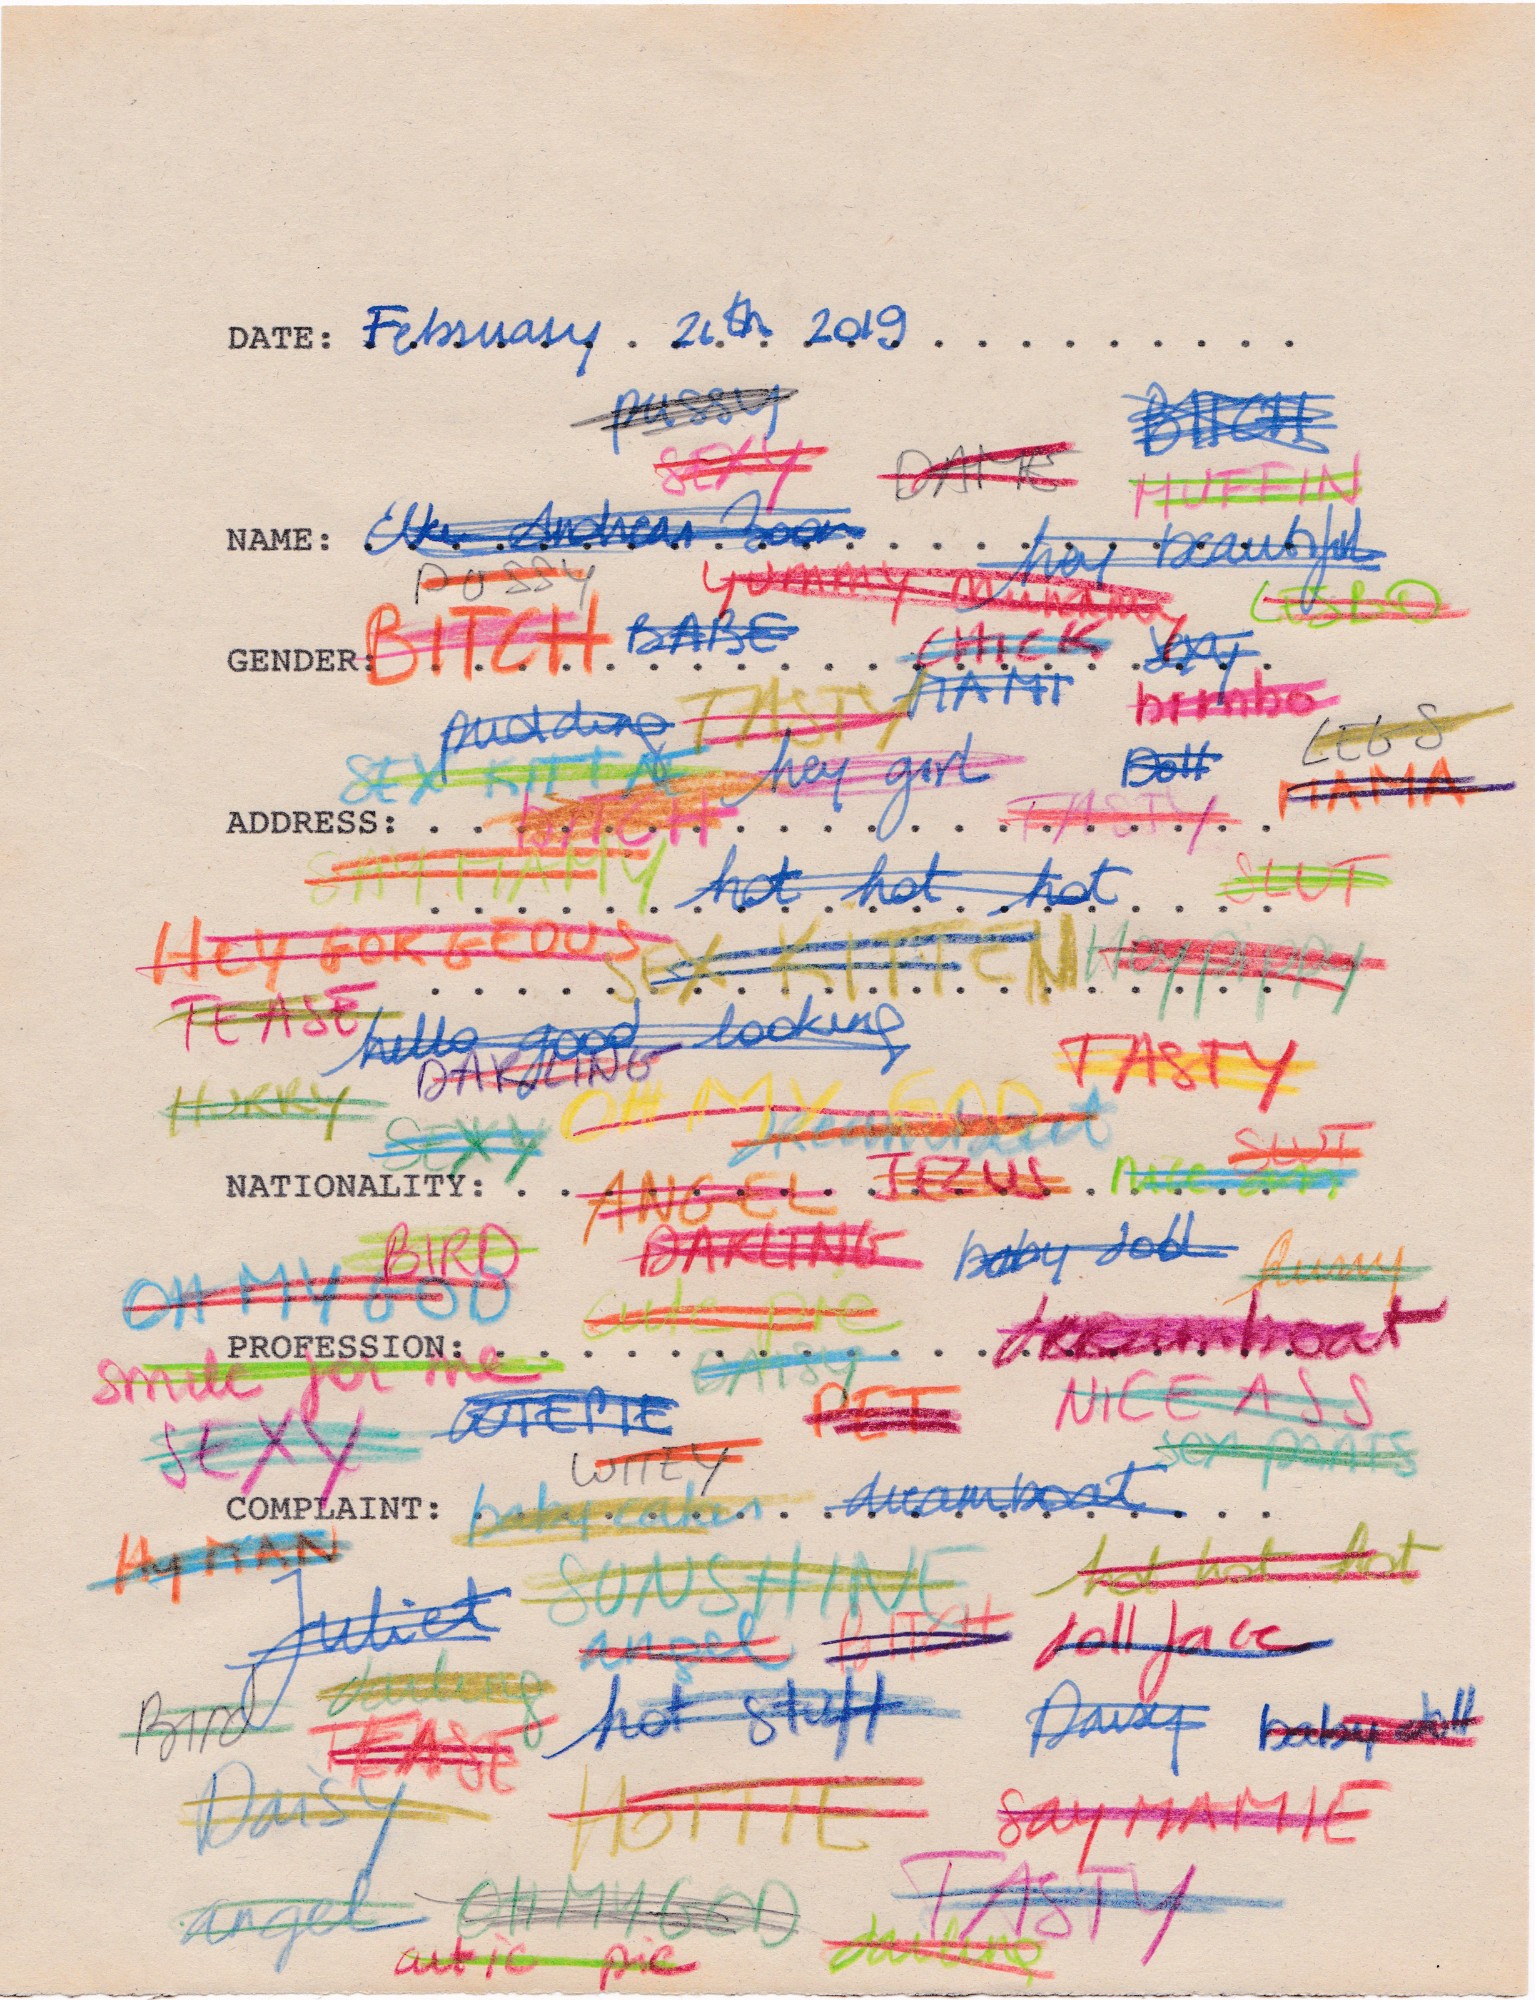 DATE: February 26th 2019
pussy BITCH
SEXY DAME MUFFIN
NAME: Elke Andreas Boon hey beautiful
PUSSY yummy mummy LESBO
GENDER: BITCH BABE CHICK sexy
pudding TASTY MAMI bimbo LEGS
SEX KITTEN hey girl Doll MAMA
ADDRESS: BITCH TASTY
SAY MAMY hot hot hot SLUT
HEY GORGEOUS SEX KITTEN Hey pippy
TEASE hello good looking
DARLING TASTY
HURRY OH MY GOD
SEXY dreamboat SLUT
NATIONALITY: ANGEL JEZUS nice ass
BIRD DARLING baby doll
OH MY GOD cutie pie
PROFESSION: dreamboat
smile for me DAISY
SEXY CUTEPIE PET NICE ASS
sex pants
COMPLAINT: babycakes dreamboat
Hy MAN SUNSHINE hot hot hot
Juliet angel BITCH doll face
BIRD darling hot stuff Daisy baby doll
TEASE
Daisy HOTTIE say MAMIE
angel OH MY GOD TASTY
cutie pie darling